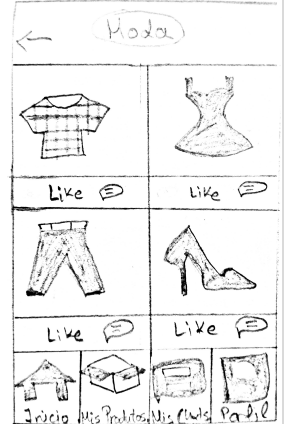 Moda
Like Like
Like Like
Inicio Mis Prodtos Mis Chats Perfil